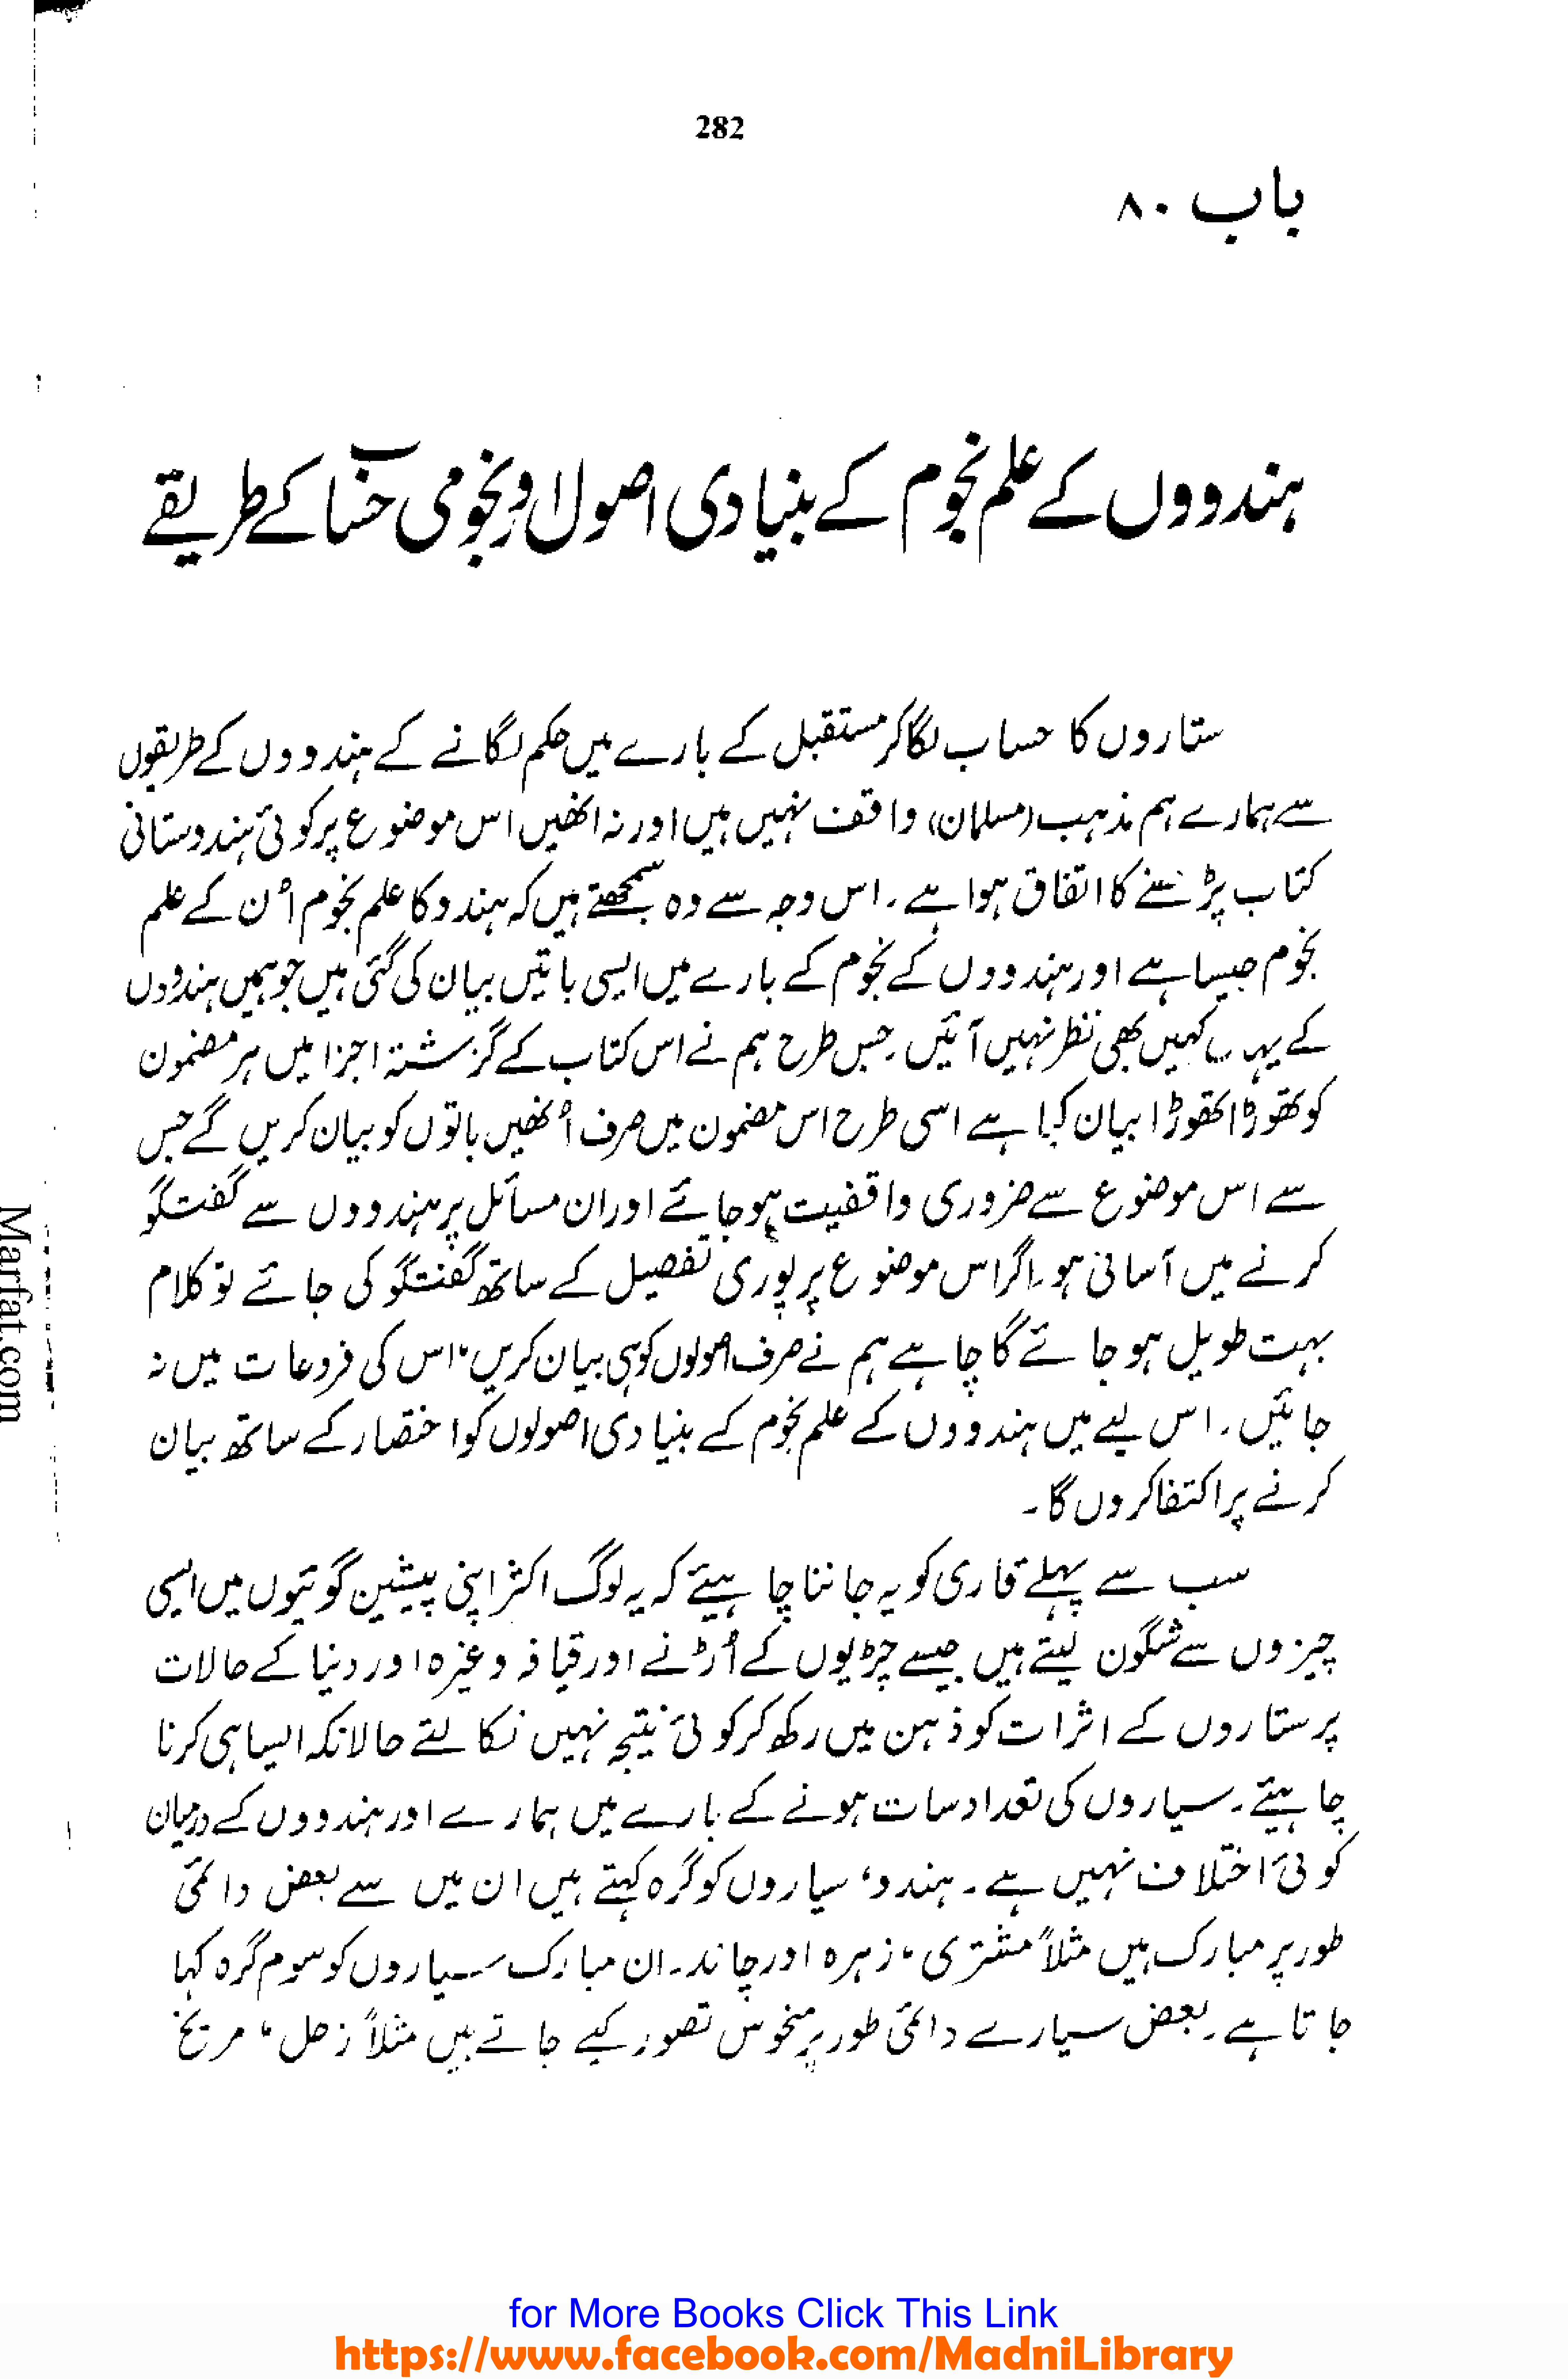 282
باب ۸۰
ہندوؤں کے علم نجوم کے بنیادی اصول اور نجومی حساب کے طریقے
ستاروں کا حساب لگا کر مستقبل کے بارے میں حکم لگانے کے ہندوؤں کے طریقوں
سے ہمارے ہم مذہب (مسلمان) واقف نہیں ہیں اور نہ انھیں اس موضوع پر کوئی ہندوستانی
کتاب پڑھنے کا اتفاق ہوا ہے۔ اس وجہ سے وہ سمجھتے ہیں کہ ہندو کا علم نجوم اُن کے علم
نجوم جیسا ہے اور ہندووں کے نجوم کے بارے میں ایسی باتیں بیان کی گئی ہیں جو ہمیں ہندوؤں
کے یہاں کہیں بھی نظر نہیں آئیں۔ جس طرح ہم نے اس کتاب کے گزشتہ اجزا میں ہر مضمون
کو تھوڑا تھوڑا بیان کیا ہے اسی طرح اس مضمون میں صرف اُنھیں باتوں کو بیان کریں گے جس
سے اس موضوع سے ضروری واقفیت ہو جائے اور ان مسائل پر ہندووں سے گفتگو
کرنے میں آسانی ہو۔ اگر اس موضوع پر پوری تفصیل کے ساتھ گفتگو کی جائے تو کلام
بہت طویل ہو جائے گا چاہے ہم نے صرف اصولوں کو ہی بیان کریں، اس کی فروعات میں نہ
جائیں۔ اس لیے میں ہندووں کے علم نجوم کے بنیادی اصولوں کو اختصار کے ساتھ بیان
کرنے پر اکتفا کروں گا۔
سب سے پہلے قاری کو یہ جاننا چاہیئے کہ یہ لوگ اکثر اپنی پیشین گوئیوں میں ایسی
چیزوں سے شگون لیتے ہیں جیسے چڑیوں کے اُڑنے اور قیافہ وغیرہ اور دنیا کے حالات
پر ستاروں کے اثرات کو ذہن میں رکھ کر کوئی نتیجہ نہیں نکالتے حالانکہ ایسا ہی کرنا
چاہیئے۔ سیاروں کی تعداد سات ہونے کے بارے میں ہمارے اور ہندووں کے درمیان
کوئی اختلاف نہیں ہے۔ ہندو، سیاروں کو گرہ کہتے ہیں ان میں سے بعض دائمی
طور پر مبارک ہیں مثلاً مشتری، زہرہ اور چاند۔ ان مبارک سیاروں کو سوم گرہ کہا
جاتا ہے۔ بعض سیارے دائمی طور پر منحوس تصور کیے جاتے ہیں مثلاً زحل، مریخ
Marfat.com
for More Books Click This Link
https://www.facebook.com/MadniLibrary